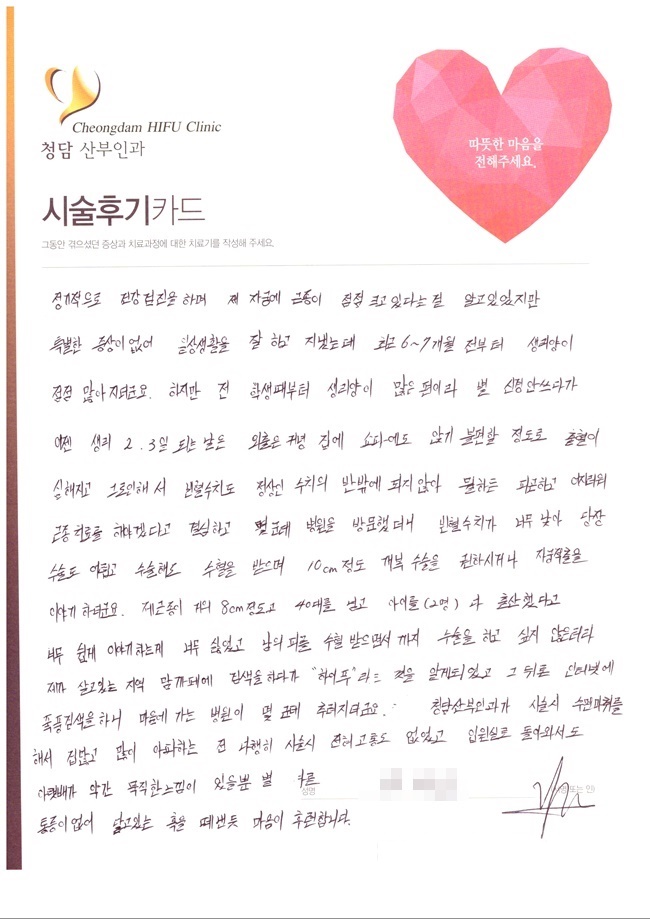 Cheongdam HIFU Clinic
청담 산부인과
따뜻한 마음을
전해주세요.
시술후기카드
그동안 겪으셨던 증상과 치료과정에 대한 치료기를 작성해 주세요.
정기적으로 건강검진을 하며 제 자궁에 근종이 점점 크고 있다는걸 알고있었지만
특별한 증상이 없어 일상생활을 잘 하고 지냈는데 최근 6~7개월 전부터 생리양이
점점 많아지더군요. 하지만 전 학생때부터 생리양이 많은편이라 별 신경안쓰다가
이젠 생리 2.3일 되는날은 외출은커녕 집에 쇼파에도 앉기 불편할 정도로 출혈이
심해지고 그로인해서 빈혈수치도 정상인 수치의 반밖에 되지않아 뭘하든 피곤하고 어지러워
근종치료를 해야겠다고 결심하고 몇군데 병원을 방문했더니 빈혈수치가 너무 낮아 당장
수술도 어렵고 수술해도 수혈을 받으며 10cm정도 개복 수술을 권하시거나 자궁적출을
이야기 하더군요. 제근종이 거의 8cm정도고 40대를 넘고 아이를(2명) 다 출산했다고
너무 쉽게 이야기하는게 너무 싫었고 남의 피를 수혈 받으면서 까지 수술을 하고 싶지 않은터라
제가 살고있는 지역 맘까페에 검색을 하다가 "하이푸"라는 것을 알게되었고 그 뒤로 인터넷에
폭풍검색을 하니 마음에 가는 병원이 몇 군데 추려지더군요. 청담산부인과가 시술시 수면마취를
해서 겁많고 많이 아파하는 전 다행히 시술시 전혀 고통도 없었고 입원실로 돌아와서도
아랫배가 약간 묵직한느낌이 있을뿐 별 다른
성명
통증이 없어 달고있는 혹을 떼낸듯 마음이 후련합니다.